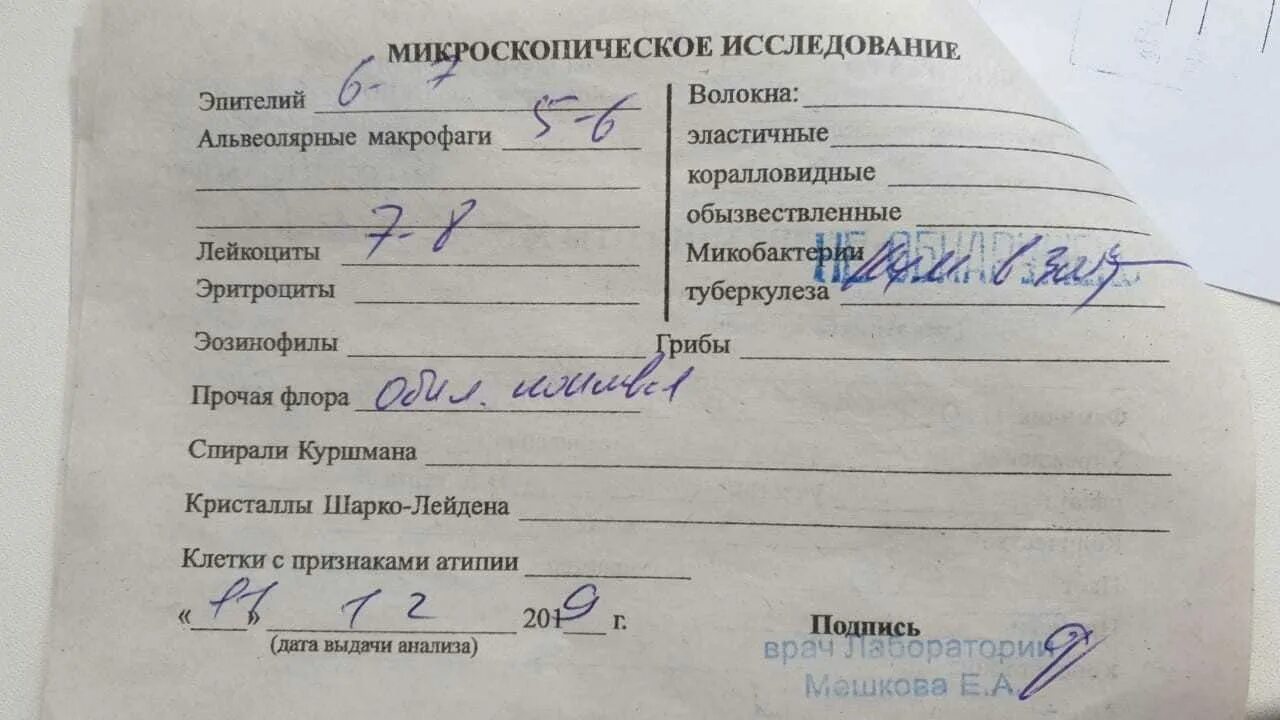 МИКРОСКОПИЧЕСКОЕ ИССЛЕДОВАНИЕ
Эпителий 6-7
Альвеолярные макрофаги 5-6
Лейкоциты 7-8
Эритроциты
Волокна:
эластичные
коралловидные
обызвествленные
Микобактерии НЕ ОБНАРУЖЕНО
туберкулеза
Эозинофилы Грибы
Прочая флора Обил.
Спирали Куршмана
Кристаллы Шарко-Лейдена
Клетки с признаками атипии
« » 12 2019 г.
(дата выдачи анализа)
Подпись
врач Лаборатории
Мешкова Е.А.